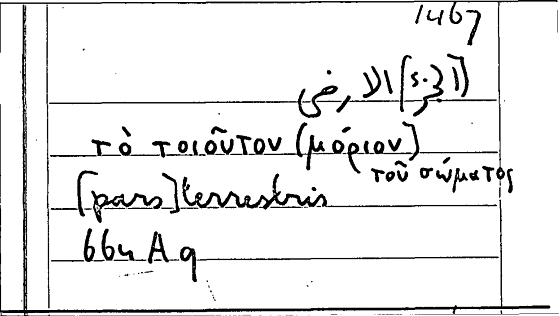 1467
[الجزء] الارضى
τὸ τοιοῦτον (μόριον)
τοῦ σώματος
[pars] terrestris
664 A 9